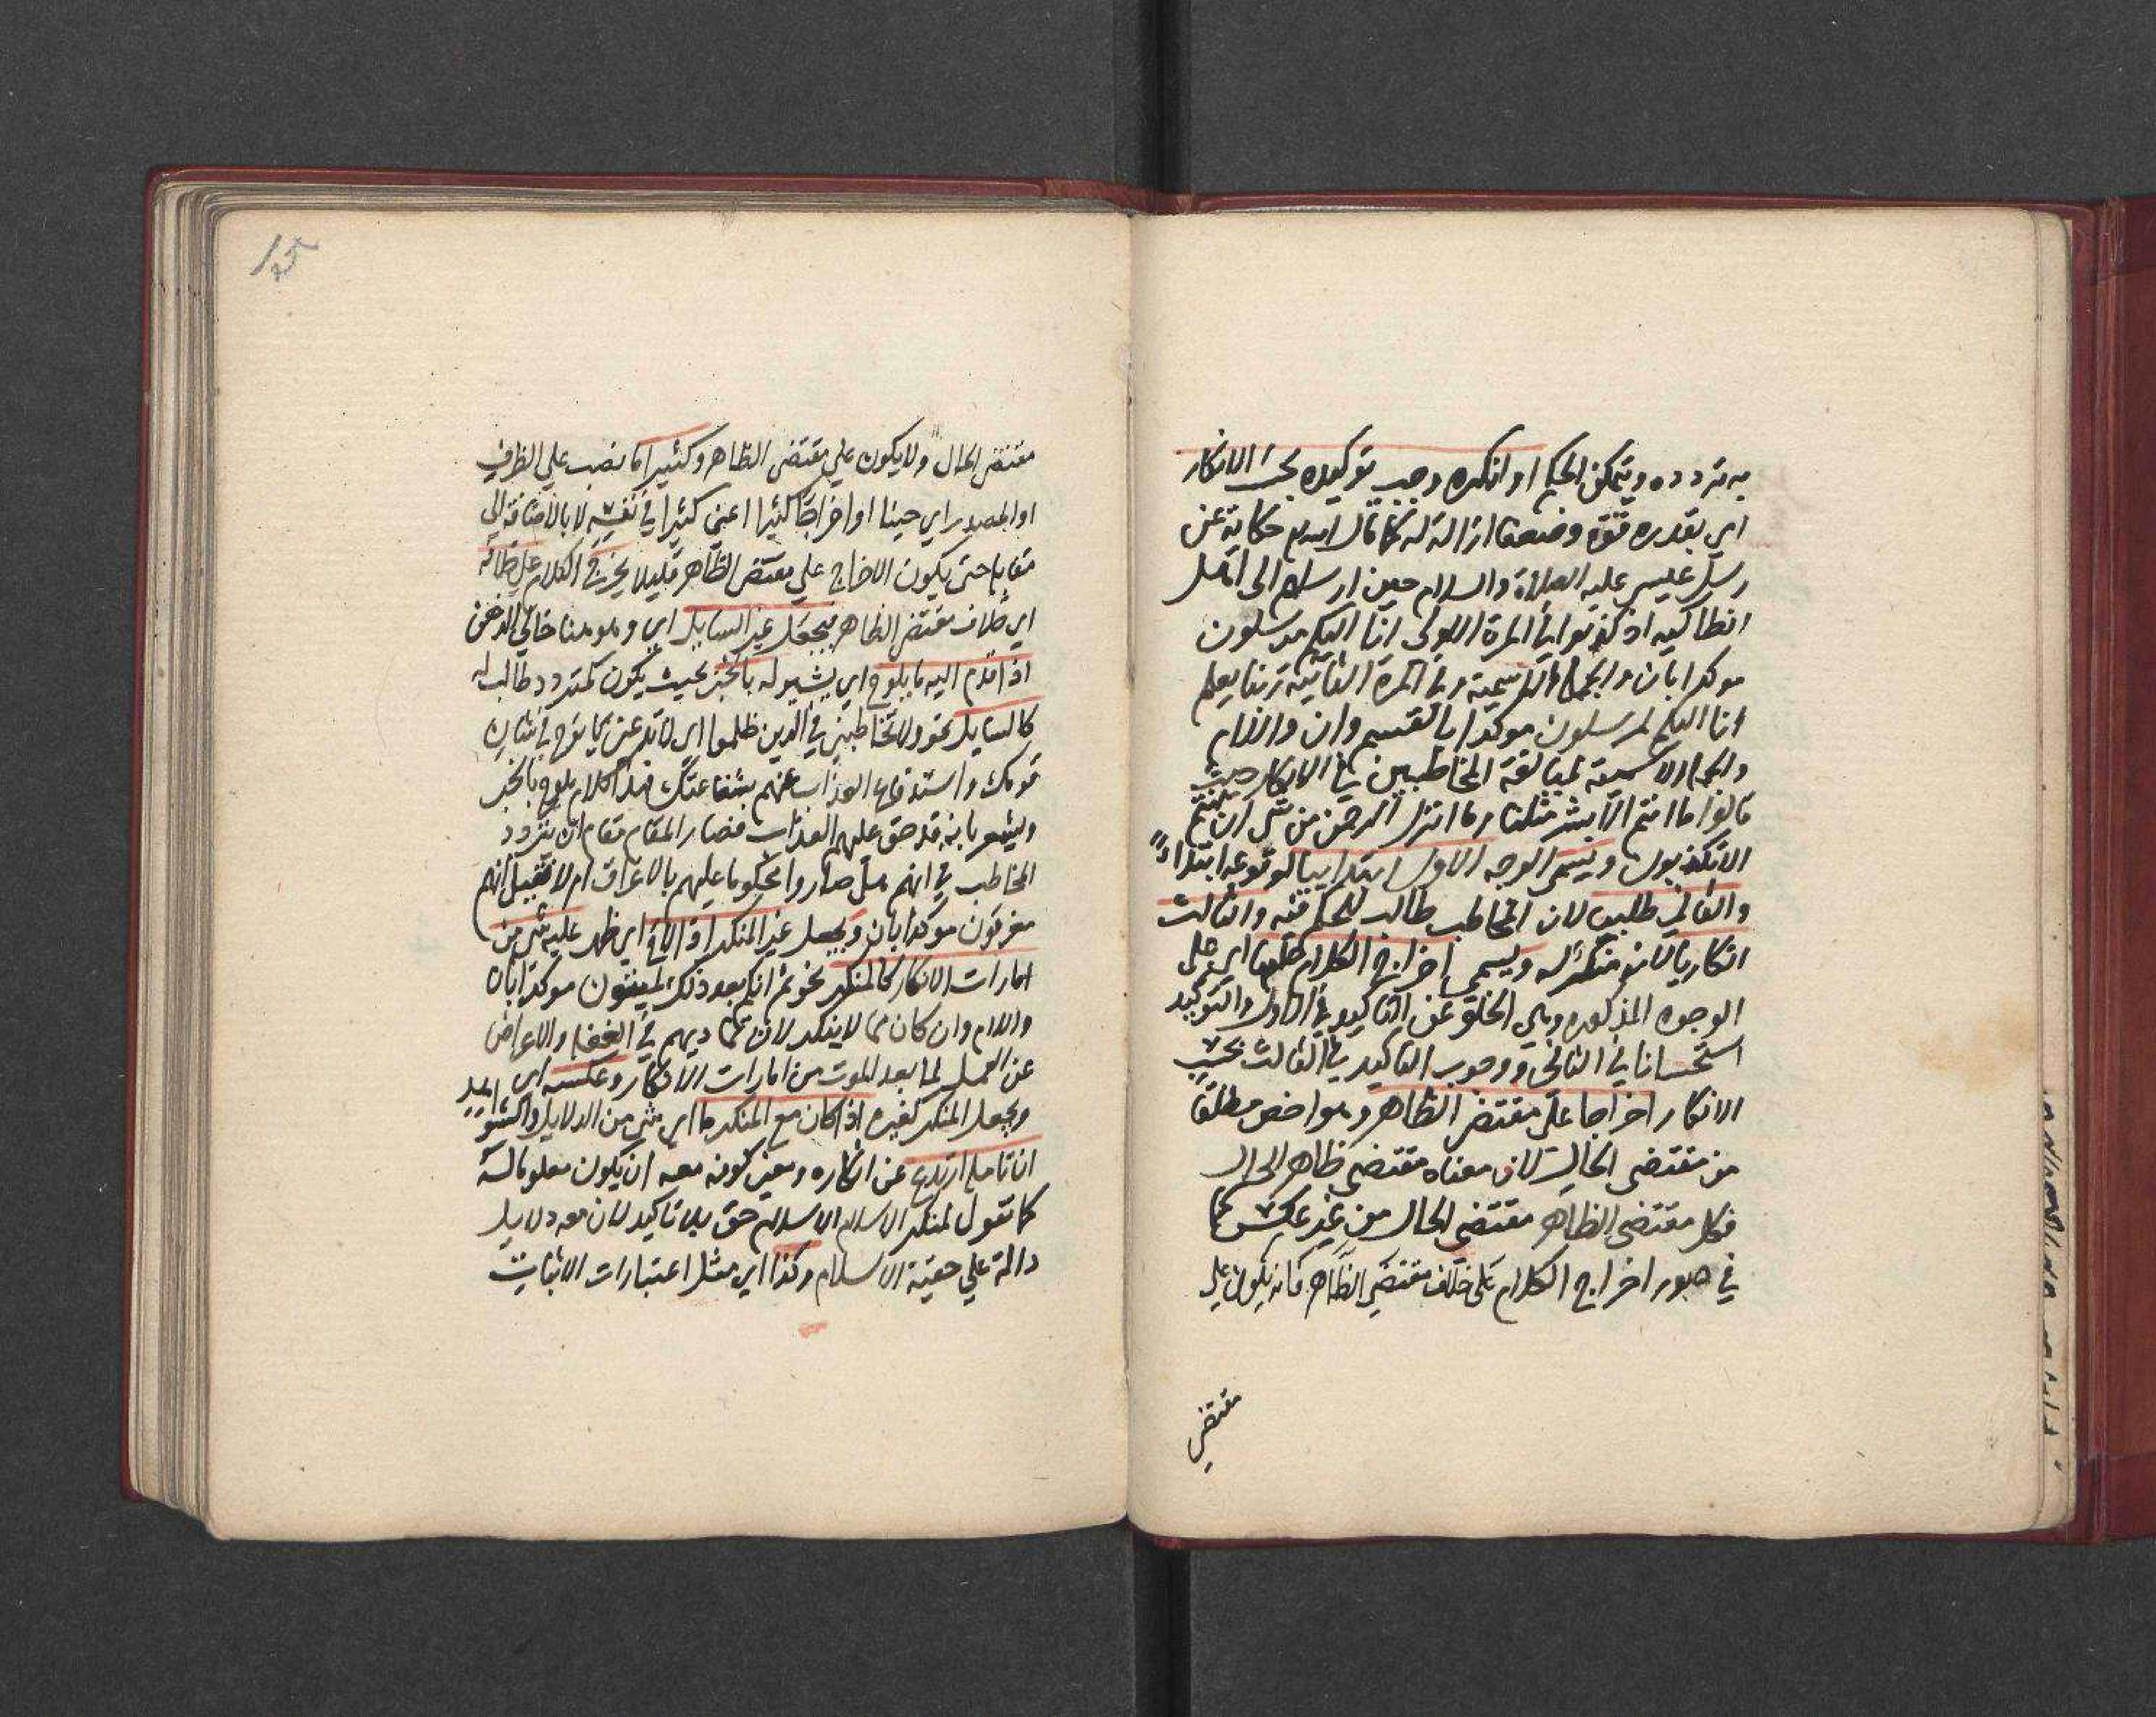 به تردده ويتمكن الحكم او انكره وجب توكيده بحسب الانكار
اي بقدره قوة وضعفا ازالة له كما قال الله تع حكاية عن
رسل عيسى عليه الصلاة والسلام حين ارسلهم الى اهل
انطاكيه اذ كذبوا في المرة الاولى انا اليكم مرسلون
موكدا بان والجملة الاسمية وفي المرة الثانية ربنا يعلم
انا اليكم لمرسلون موكدا بالقسم وان واللام
والجملة الاسمية لمبالغة المخاطبين في الانكار حيث
قالوا ما انتم الا بشر مثلنا وما انزل الرحمن من شي ان انتم
الا تكذبون ويسمى الوجه الاول ابتدائيا لوقوعه ابتداءً
والثاني طلبيا لان المخاطب طالب للحكم فيه والثالث
انكاريا لانه منكر له ويسمى اخراج الكلام عليها اي على
الوجوه المذكوره وهي الخلو عن التاكيد في الاول والتوكيد
استحسانا في الثاني ووجوب التاكيد في الثالث بحسب
الانكار اخراجا على مقتضى الظاهر وهو اخص مطلقا
من مقتضى الحال لان معناه مقتضى ظاهر الحال
فكل مقتضى الظاهر مقتضى الحال من غير عكس كما
في صور اخراج الكلام على خلاف مقتضى الظاهر فانه يكون على
مقتضى
مقتضى الحال ولا يكون على مقتضى الظاهر وكثيرا ما نصب على الظرف
او المصدر اي حينا او اخراجا كثيرا اعني كثيرا في نفسه لا بالاضافة الى
مقابله حتى يكون الاخراج على مقتضى الظاهر قليلا يخرج الكلام على خلافه
اي خلاف مقتضى الظاهر فيجعل غير السايل اي وهو هنا خالي الذهن
اذا قدم اليه ما يلوح اي يشير له بالخبر بحيث يكون كمتردد طالب له
كالسايل نحو ولا تخاطبني في الذين ظلموا اي لا تدعني يا نوح في شان
قومك واستدفاع العذاب عنهم بشفاعتك فهذا كلام يلوح بالخبر
ويشعر بانه قد حق عليهم العذاب فصار المقام مقام ان يتردد
المخاطب في انهم هل صاروا محكوما عليهم بالاغراق ام لا فقيل انهم
مغرقون موكدا بان ويجعل غير المنكر اذا لاح اي ظهر عليه شي من
امارات الانكار كالمنكر نحو ثم انكم بعد ذلك لميتون موكدا بان
واللام وان كان مما لا ينكر لان تماديهم في الغفلة والاعراض
عن العمل لما بعد الموت من امارات الانكار وعكسه اي
ويجعل المنكر كغيره اذا كان مع المنكر ما اي شي من الدلايل والشواهد
ان تامله ارتدع عن انكاره ومعنى كونه معه ان يكون معلوما له
كما تقول لمنكر الاسلام الاسلام حق بلا تاكيد لان معه دلايل
دالة على حقية الاسلام وكذا اي مثل اعتبارات الاثبات